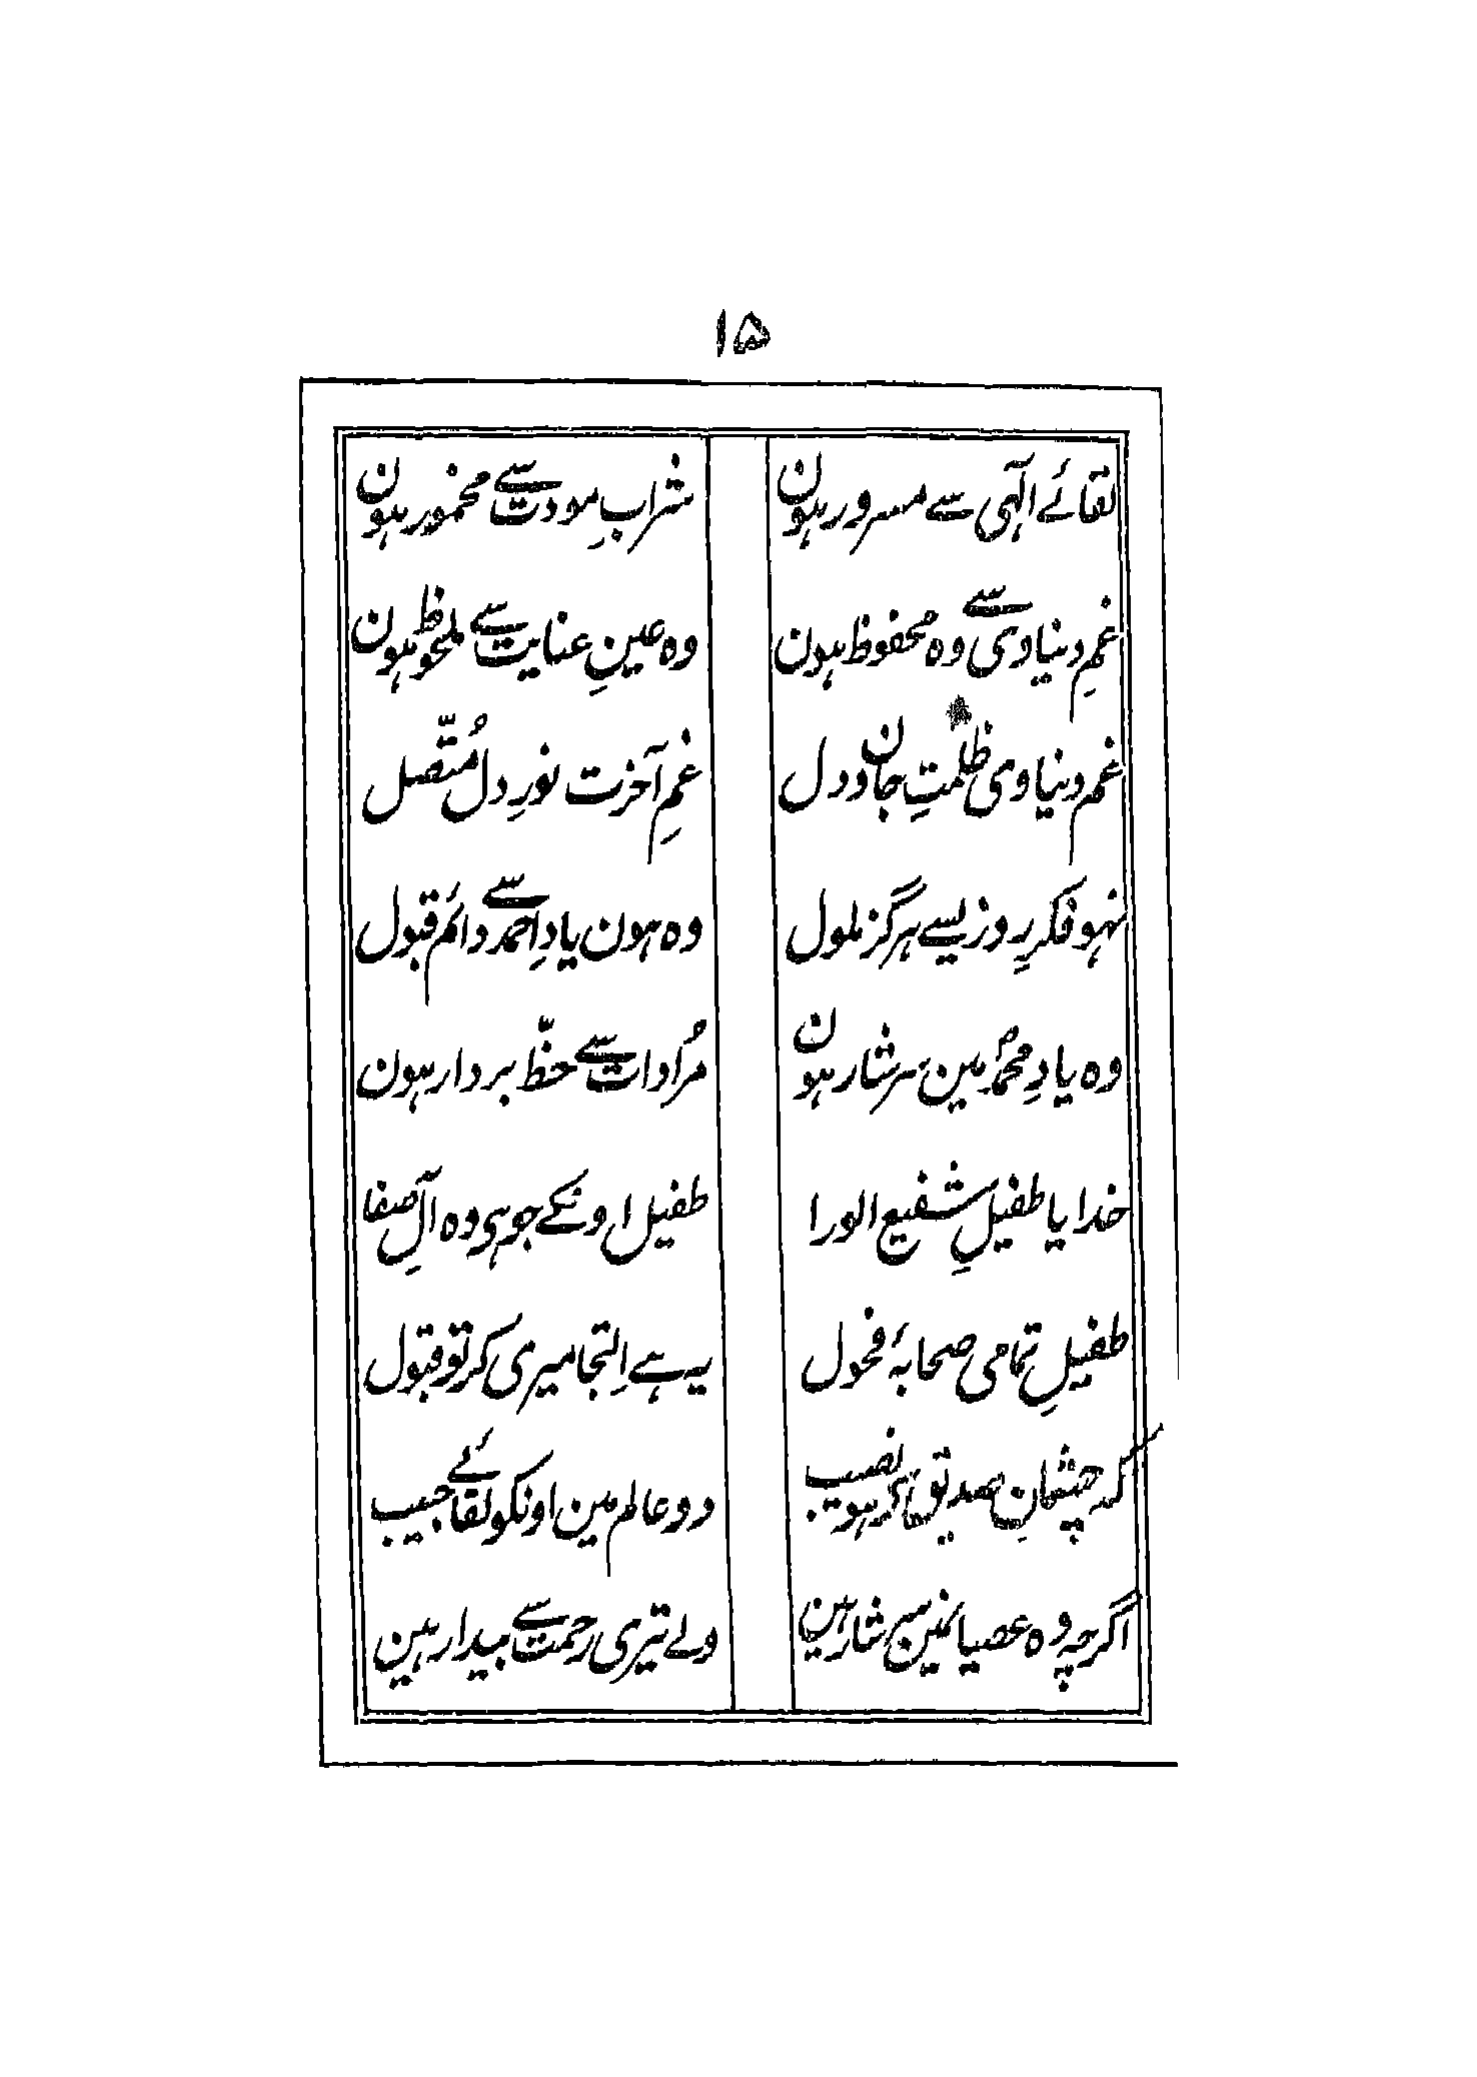 ۱۵
لقائے الٰہی سے مسرور ہون
شرابِ مودت سے مخمور ہون
غمِ دنیاوی سے وہ محفوظ ہون
وہ عینِ عنایت سے ملحوظ ہون
غم دنیاوی ظلمتِ جان و دل
غمِ آخرت نورِ دل مُتّصل
نہو فکرِ روزیسے ہرگز ملول
وہ ہون یادِ احمد سے دائم قبول
وہ یادِ محمدؐ مین سرشار ہون
مُرادات سے حظّ بردار ہون
خدایا طفیلِ شفیع الورا
طفیل اونکے جو ہی وہ آلِ صفا
طفیلِ تمامی صحابہٴ فحول
یہ ہے اِلتجا میری کر تو قبول
کہ چشمانِ صدیق ہو نصیب
دو عالم مین اونکو لقائے حبیب
اگرچہ وہ عصیانمین سرشار ہین
ولے تیری رحمت سے بیدار ہین